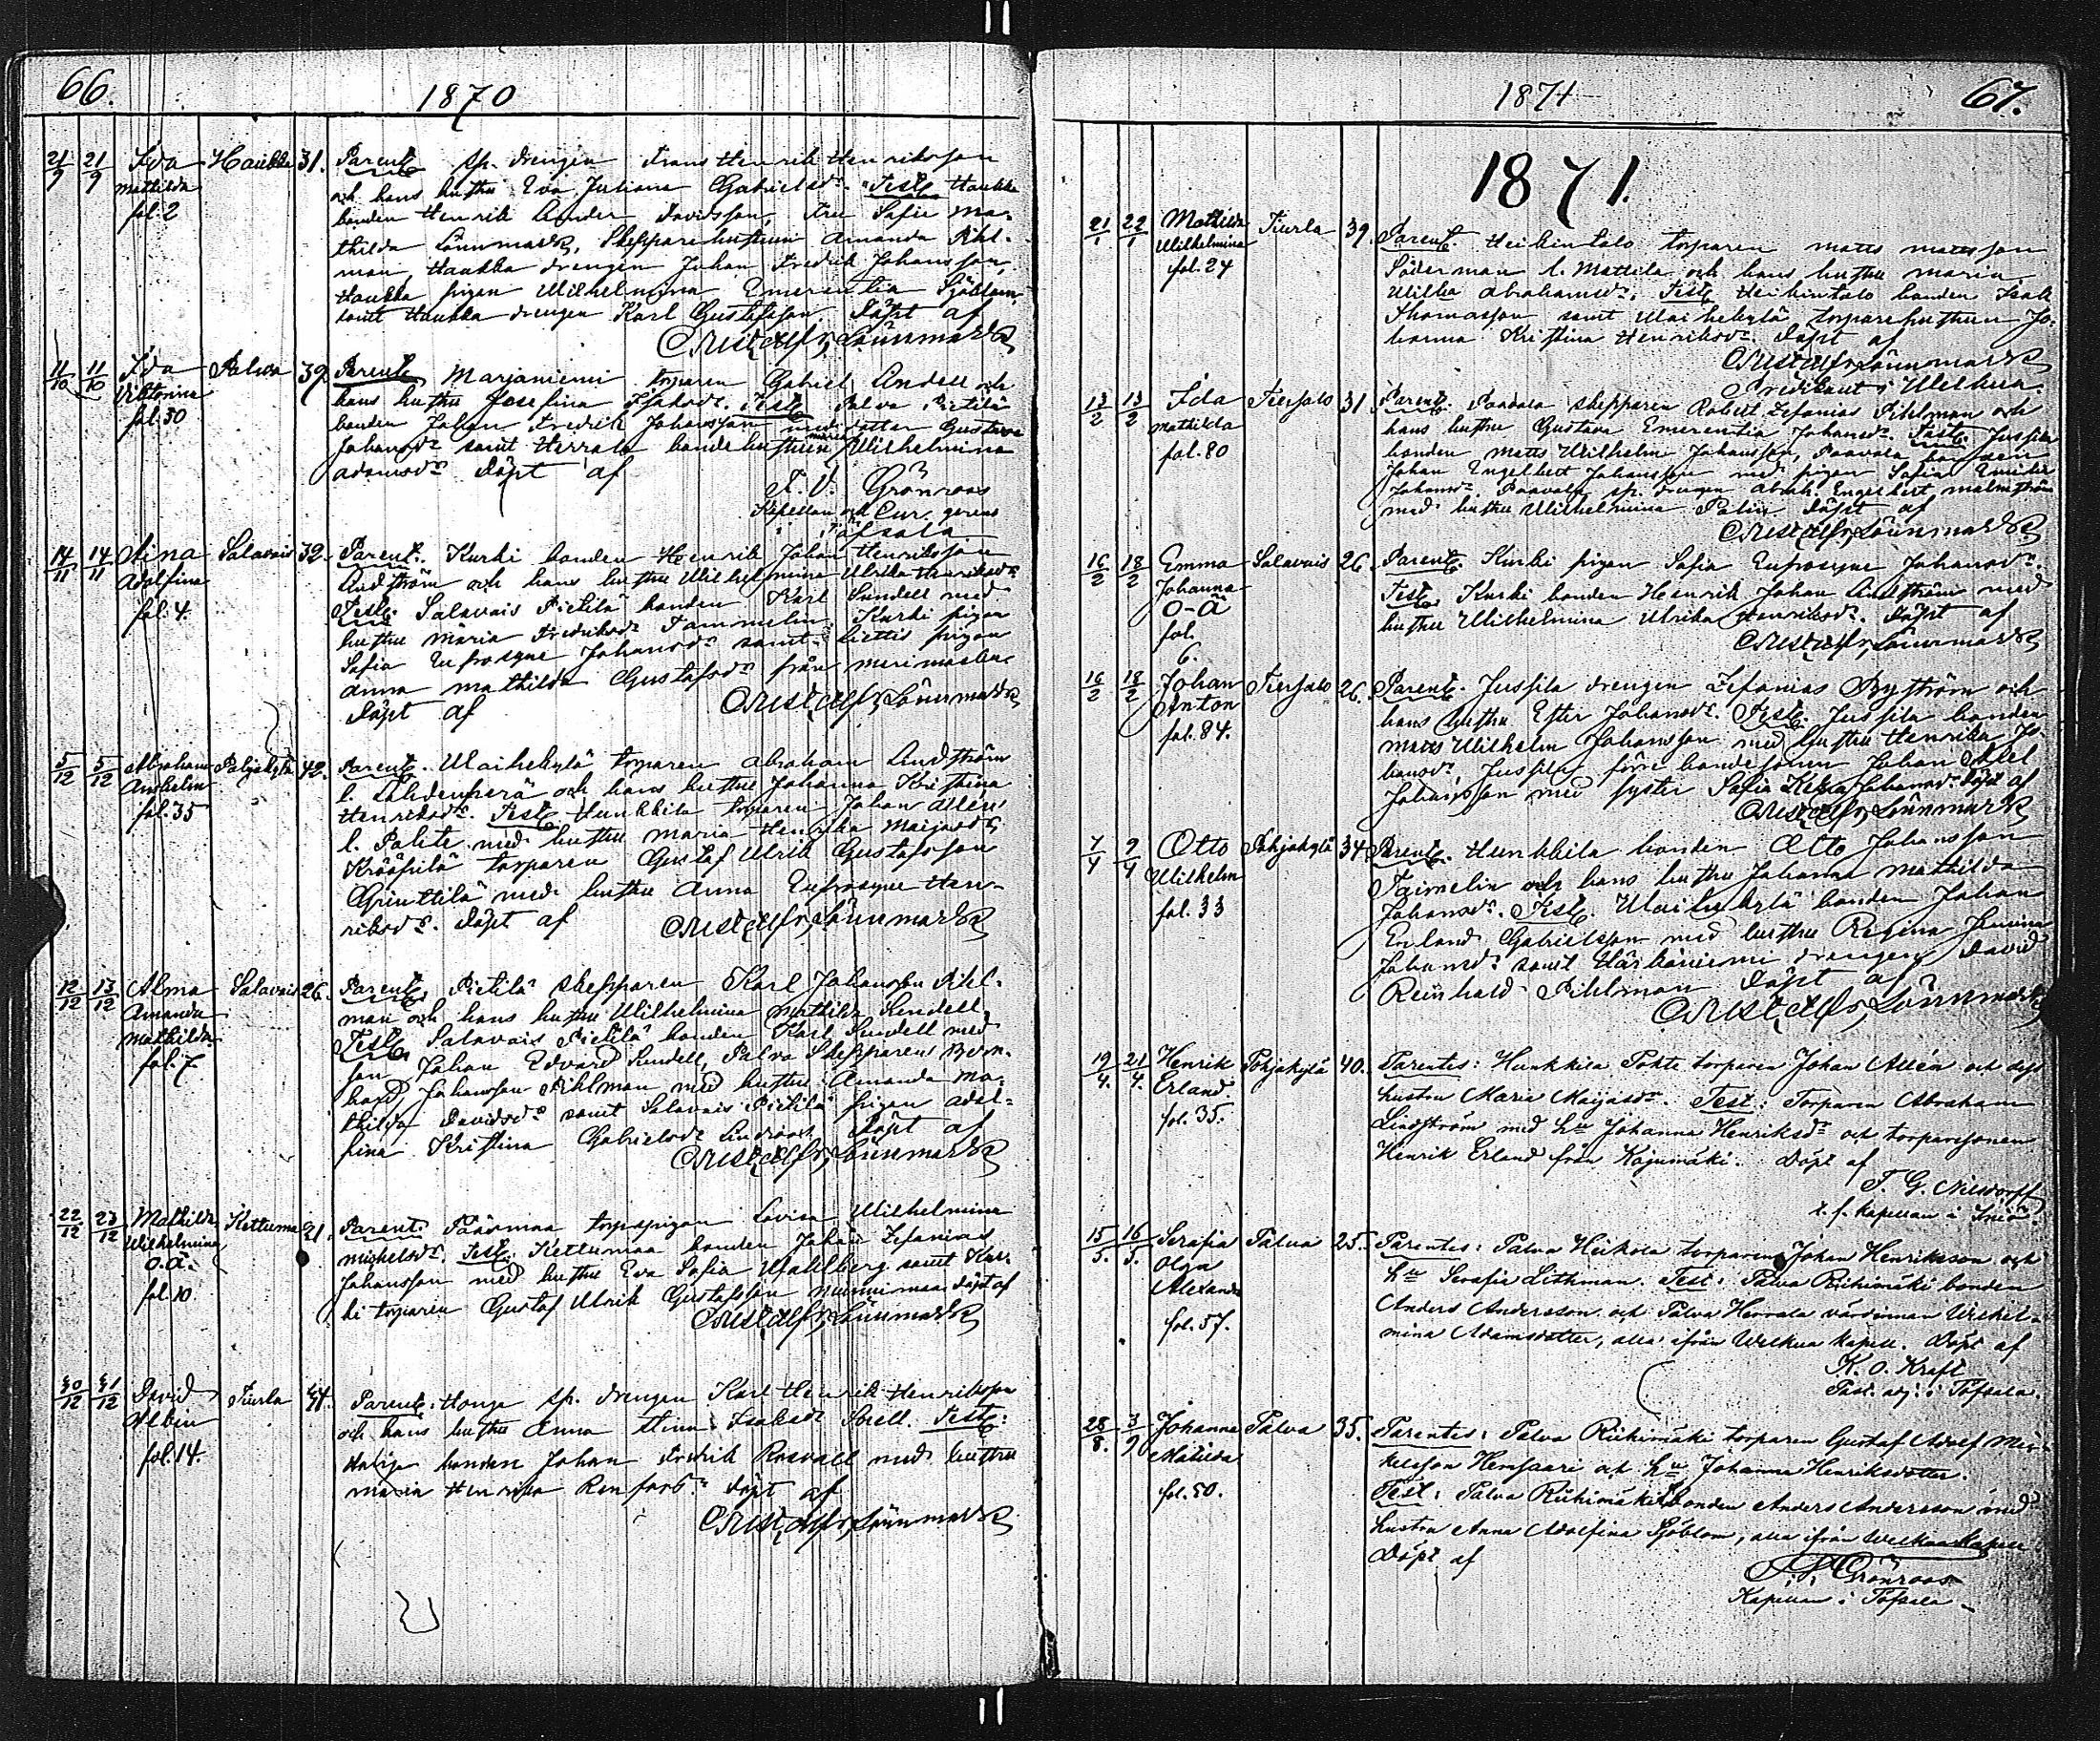 66.
1870
21/9 21/9 Ida Haukka 31. Parent. sp. drengen Frans Henrik Henriksson
Mathilda och hans hustru Eva Juliana Gabrielsdr. Test. Haukka
fol. 2 bonden Henrik Ander Davidsson, Fru Sofie Ma-
thilda Lönnmark, Skepparehustrun Amanda Pihl-
man, Haukka drengen Johan Fredrik Johansson,
Haukka pigan Wilhelmina Emerentia Sjöblom
samt Haukka drengen Karl Gustafsson. Döpt af
Lönnmark
11/10 11/10 Ida Palva 39 Parent. Marjaniemi torparen Gabriel Andell och
Viktorina hans hustru Josefina Isaksdr. Test. Palva Pietilä
fol. 50 bonden Johan Fredrik Johansson med dotter Gustava
Johansdr samt Herrala bondehustrun Maria Wilhelmina
Adamsdr Döpt af
F. V. Grönroos
Kapellan och Cur. gerens
i Töfsala
14/11 14/11 Lina Salavais 32. Parent. Kurki bonden Henrik Johan Henriksson
Adolfina Lindström och hans hustru Wilhelmina Ulrika Henriksdr
fol. 4. Test. Salavais Pietilä bonden Karl Sundell med
hustru Maria Fredriksdr Tammelin, Kurki pigan
Sofia Eufrosyne Johansdr samt Liettis pigan
Anna Mathilda Gustafsdr från Merimasku
Döpt af Lönnmark
5/12 5/12 Abraham Pohjakylä 42. Parent. Vaihekylä torparen Abraham Lindström
Anshelm l. Lahdenperä och hans hustru Johanna Kristina
fol. 35 Henriksdr. Test. Hunkkila torparen Johan Allén
l. Pohte med hustru Maria Henrika Maijasdr
Krööpilä torparen Gustaf Ulrik Gustafsson
Grinttilä med hustru Anna Eufrosyne Hen-
riksdr. Döpt af Lönnmark
12/12 13/12 Alma Salavais 26. Parent. Pietilä skepparen Karl Johansson Pihl-
Amanda man och hans hustru Wilhelmina Mathilda Sundell.
Mathilda Test. Salavais Pietilä bonden Karl Sundell med
fol. 7 son Johan Edvard Sundell, Palva Skepparen Bern-
hard Johansson Pihlman med hustru Amanda Ma-
thilda Davidsdr samt Salavais Pietilä pigan Adol-
fina Kristina Gabrielsdr Lindroos Döpt af
Lönnmark
22/12 23/12 Mathilda Kettumaa 21. Parent. Päärmaa torpspigan Lovisa Wilhelmina
Wilhelmina Michelsdr. Test. Kettumaa bonden Johan Zefanias
o.ä. Johansson med hustru Eva Sofia Wahlberg samt Kur-
fol. 10 ki torparen Gustaf Ulrik Gustafsson Nurmimaa Döpt af
Lönnmark
30/12 31/12 David Tiurla 44. Parent. Honga sp. drengen Karl Henrik Henriksson
Albin och hans hustru Anna Stina Isaksdr Sorell. Test.
fol. 14. bonden Johan Fredrik Rosvall med hustru
Maria Henrika Renfors. Döpt af
Lönnmark
1871
67.
1871.
21/1 22/1 Mathilda Tiurla 39. Parent. Heikintalo torparen Matts Mattsson
Wilhelmina Söderman l. Mattila och hans hustru Maria
fol. 24 Ulrika Abrahamsdr. Test. Heikintalo bonden Isak
Thomasson samt Vaihekylä torparehustrun Jo-
hanna Kristina Henriksdr. Döpt af
Lönnmark
Predikant i Welkua.
13/2 13/2 Ida Tiersalo 31 Parent. Paavola skepparen Robert Zefanias Pihlman och
Mathilda hans hustru Gustava Emerentia Johansdr. Test. Jussila
fol. 80 bonden Matts Wilhelm Johansson, Paavola bonden
Johan Engelbert Johansson med pigan Sofia
Johansdr. Paavola sp. drengen Abrah. Engelbert Malmström
med hustru Wilhelmina Palin. Döpt af
Lönnmark
16/2 18/2 Emma Salavais 26. Parent. Kurki pigan Sofia Eufrosyne Johansdr.
Johanna Test. Kurki bonden Henrik Johan Lindström med
o-ä hustru Wilhelmina Ulrika Henriksdr. Döpt af
fol. Lönnmark
6.
16/2 18/2 Johan Tiersalo 26. Parent. Jussila drengen Zefanias Byström och
Anton hans hustru Ester Johansdr. Test. Jussila bonden
fol. 84. Matts Wilhelm Johansson med hustru Henrika Jo-
hansdr, Jussila förre bondesonen Johan Axel
Johansson med syster Sofia Johansdr. Döpt af
Lönnmark
7/4 9/4 Otto Pohjakylä 34 Parent. Hunkkila bonden Otto Johansson
Wilhelm Taimelin och hans hustru Johanna Mathilda
fol. 33 Johansdr. Test. Vaihekylä bonden Johan
Erland Gabrielsson med hustru Regina
Johansdr samt Härkäniemi drengen David
Reinhold Pihlman Döpt af
Lönnmark
19/4. 21/4. Henrik Pohjakylä 40. Parentes: Hunkkila Pohte torparen Johan Allén och dess
Erland hustru Maria Maijasdr. Test: Torparen Abraham
fol. 35. Lindström med hu Johanna Henriksdr och torparesonen
Henrik Erland från Kajumäki. Döpt af
T. G. Neidorff
t. f. kapellan i
15/5. 16/5. Serafia Palva 25. Parentes: Palva Heikola torparen Johan Henriksson och
Olga hu Serafia Lithman. Test: Palva Riihimäki bonden
Alexandra Anders Andersson och Palva Herrala värdinnan Wilhel-
fol. 57. mina Adamsdotter, alla ifrån Welkua Kapell. Döpt af
K. O. Kraft
Past. adj. i Töfsala.
28/8. 3/9 Johanna Palva 35. Parentes: Palva Riihimäki torparen Gustaf Adolf Mi-
Matilda kelsson Hempsaari och hu Johanna Henriksdotter.
fol. 50. Test: Palva Riihimäki bonden Anders Andersson med
hustru Anna Adolfina Sjöblom, alla ifrån Welkua Kapell
Döpt af
F V Grönroos
Kapellan i Töfsala